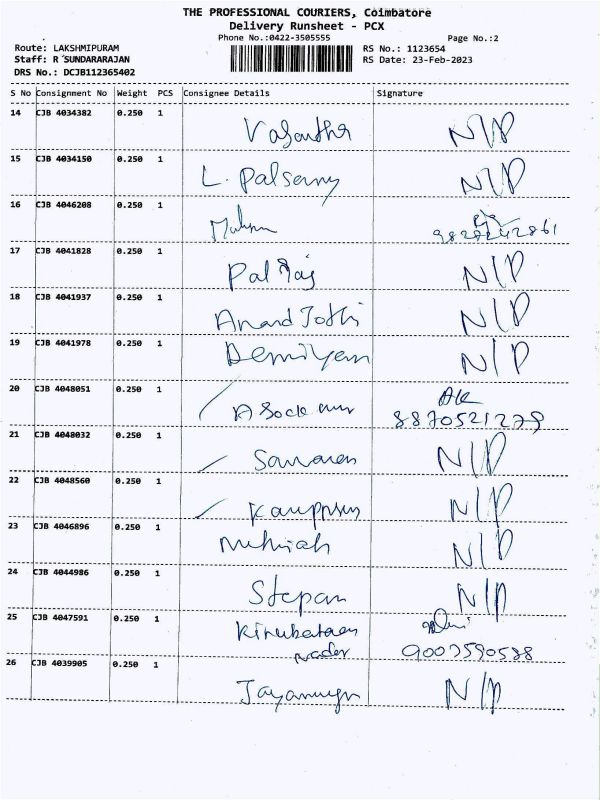 THE PROFESSIONAL COURIERS, Coimbatore
Delivery Runsheet - PCX
Phone No.:0422-3505555 Page No.:2
Route: LAKSHMIPURAM RS No.: 1123654
Staff: R SUNDARARAJAN RS Date: 23-Feb-2023
DRS No.: DCJB112365402
S No Consignment No Weight PCS Consignee Details Signature
14 CJB 4034382 0.250 1
Vasantha N/P
15 CJB 4034150 0.250 1
L. Palsamy N/P
16 CJB 4046208 0.250 1
17 CJB 4041828 0.250 1
Pal Raj N/P
18 CJB 4041937 0.250 1
Anand Jothi N/P
19 CJB 4041978 0.250 1
N/P
20 CJB 4048051 0.250 1
AK
8870521279
21 CJB 4048032 0.250 1
N/P
22 CJB 4048560 0.250 1
N/P
23 CJB 4046896 0.250 1
N/P
24 CJB 4044986 0.250 1
Stepan N/P
25 CJB 4047591 0.250 1
nader 9003590588
26 CJB 4039905 0.250 1
N/P